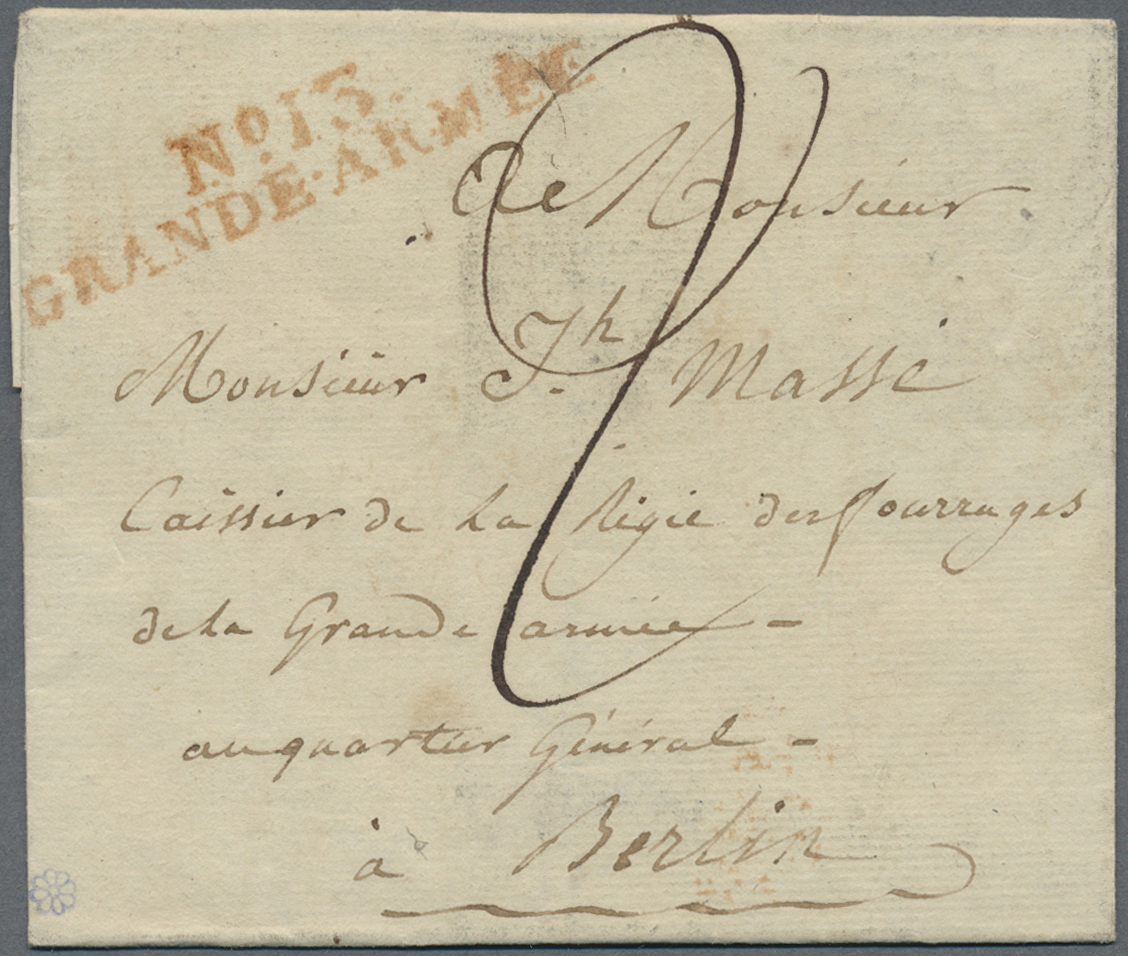 No. 13
GRANDE·ARMÉE
2
A Monsieur
Monsieur Jh. Massé
Caissier de la Régie des fourrages
de la Grande armée -
au quartier Général -
à Berlin